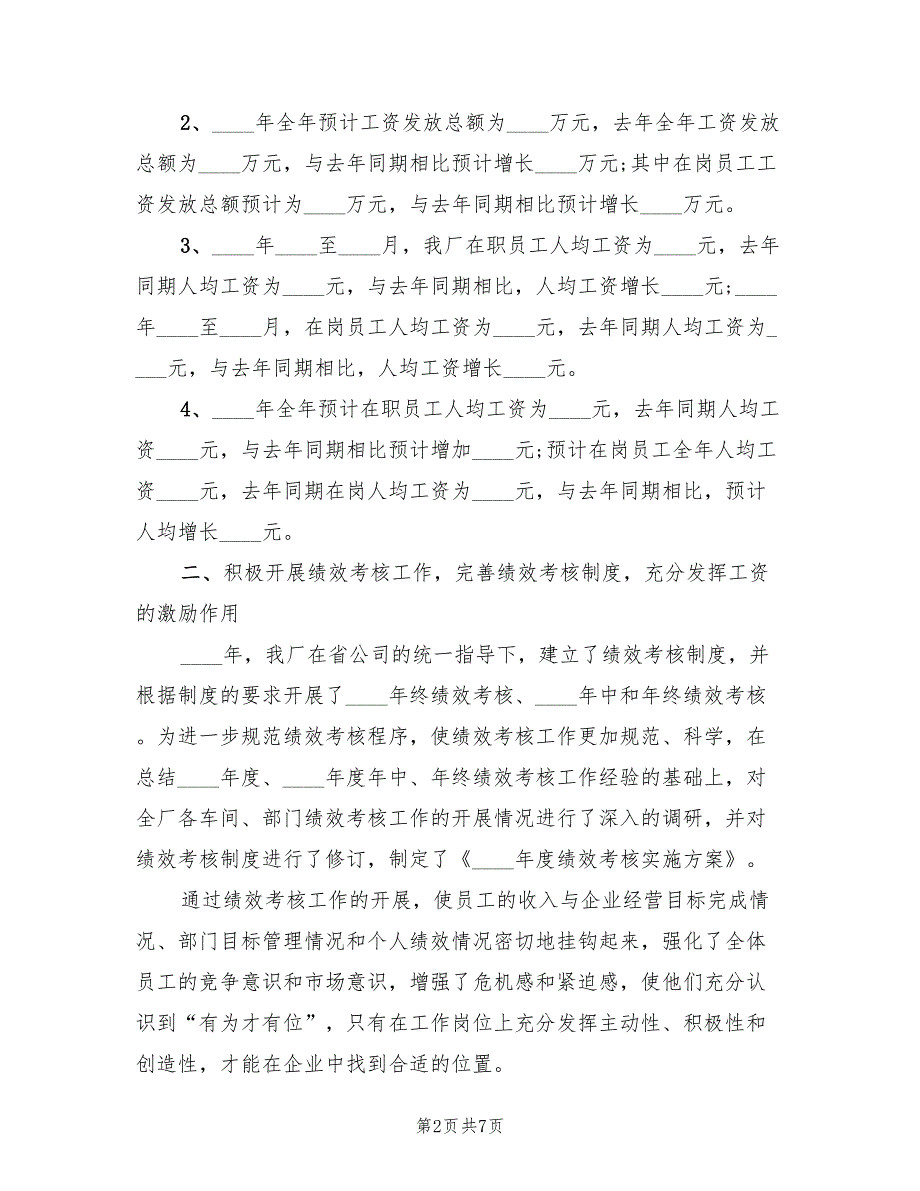 2、____年全年预计工资发放总额为____万元，去年全年工资发放
总额为____万元，与去年同期相比预计增长____万元;其中在岗员工工
资发放总额预计为____万元，与去年同期相比预计增长____万元。
3、____年____至____月，我厂在职员工人均工资为____元，去年
同期人均工资为____元，与去年同期相比，人均工资增长____元;____
年____至____月，在岗员工人均工资为____元，去年同期人均工资为_
___元，与去年同期相比，人均工资增长____元。
4、____年全年预计在职员工人均工资为____元，去年同期人均工
资____元，与去年同期相比预计增加____元;预计在岗员工全年人均工
资____元，去年同期在岗人均工资为____元，与去年同期相比，预计
人均增长____元。
二、积极开展绩效考核工作，完善绩效考核制度，充分发挥工资
的激励作用
____年，我厂在省公司的统一指导下，建立了绩效考核制度，并
根据制度的要求开展了____年终绩效考核、____年中和年终绩效考核
。为进一步规范绩效考核程序，使绩效考核工作更加规范、科学，在
总结____年度、____年度年中、年终绩效考核工作经验的基础上，对
全厂各车间、部门绩效考核工作的开展情况进行了深入的调研，并对
绩效考核制度进行了修订，制定了《____年度绩效考核实施方案》。
通过绩效考核工作的开展，使员工的收入与企业经营目标完成情
况、部门目标管理情况和个人绩效情况密切地挂钩起来，强化了全体
员工的竞争意识和市场意识，增强了危机感和紧迫感，使他们充分认
识到“有为才有位”，只有在工作岗位上充分发挥主动性、积极性和
创造性，才能在企业中找到合适的位置。
第2页共7页